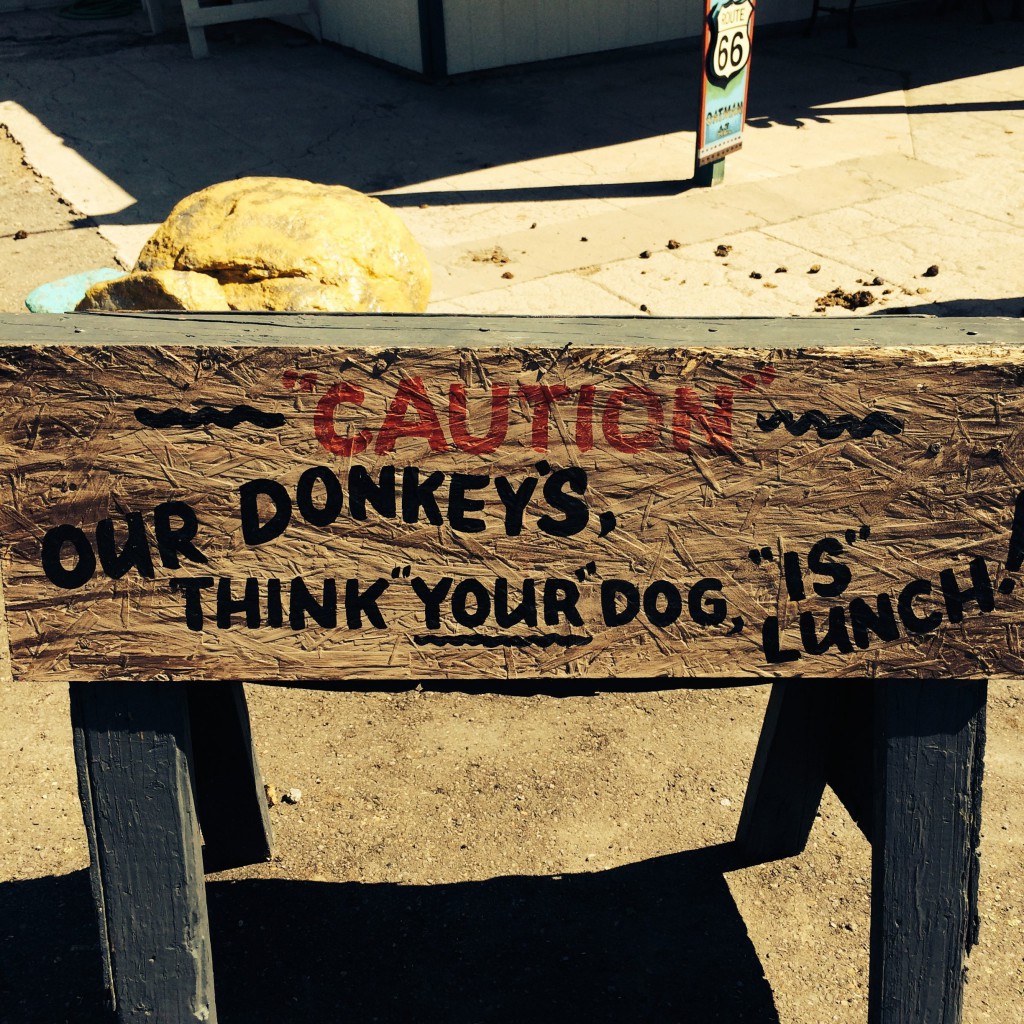 ROUTE
66
OATMAN
AZ
"CAUTION"
OUR DONKEY'S,
THINK "YOUR" DOG, "IS" LUNCH!